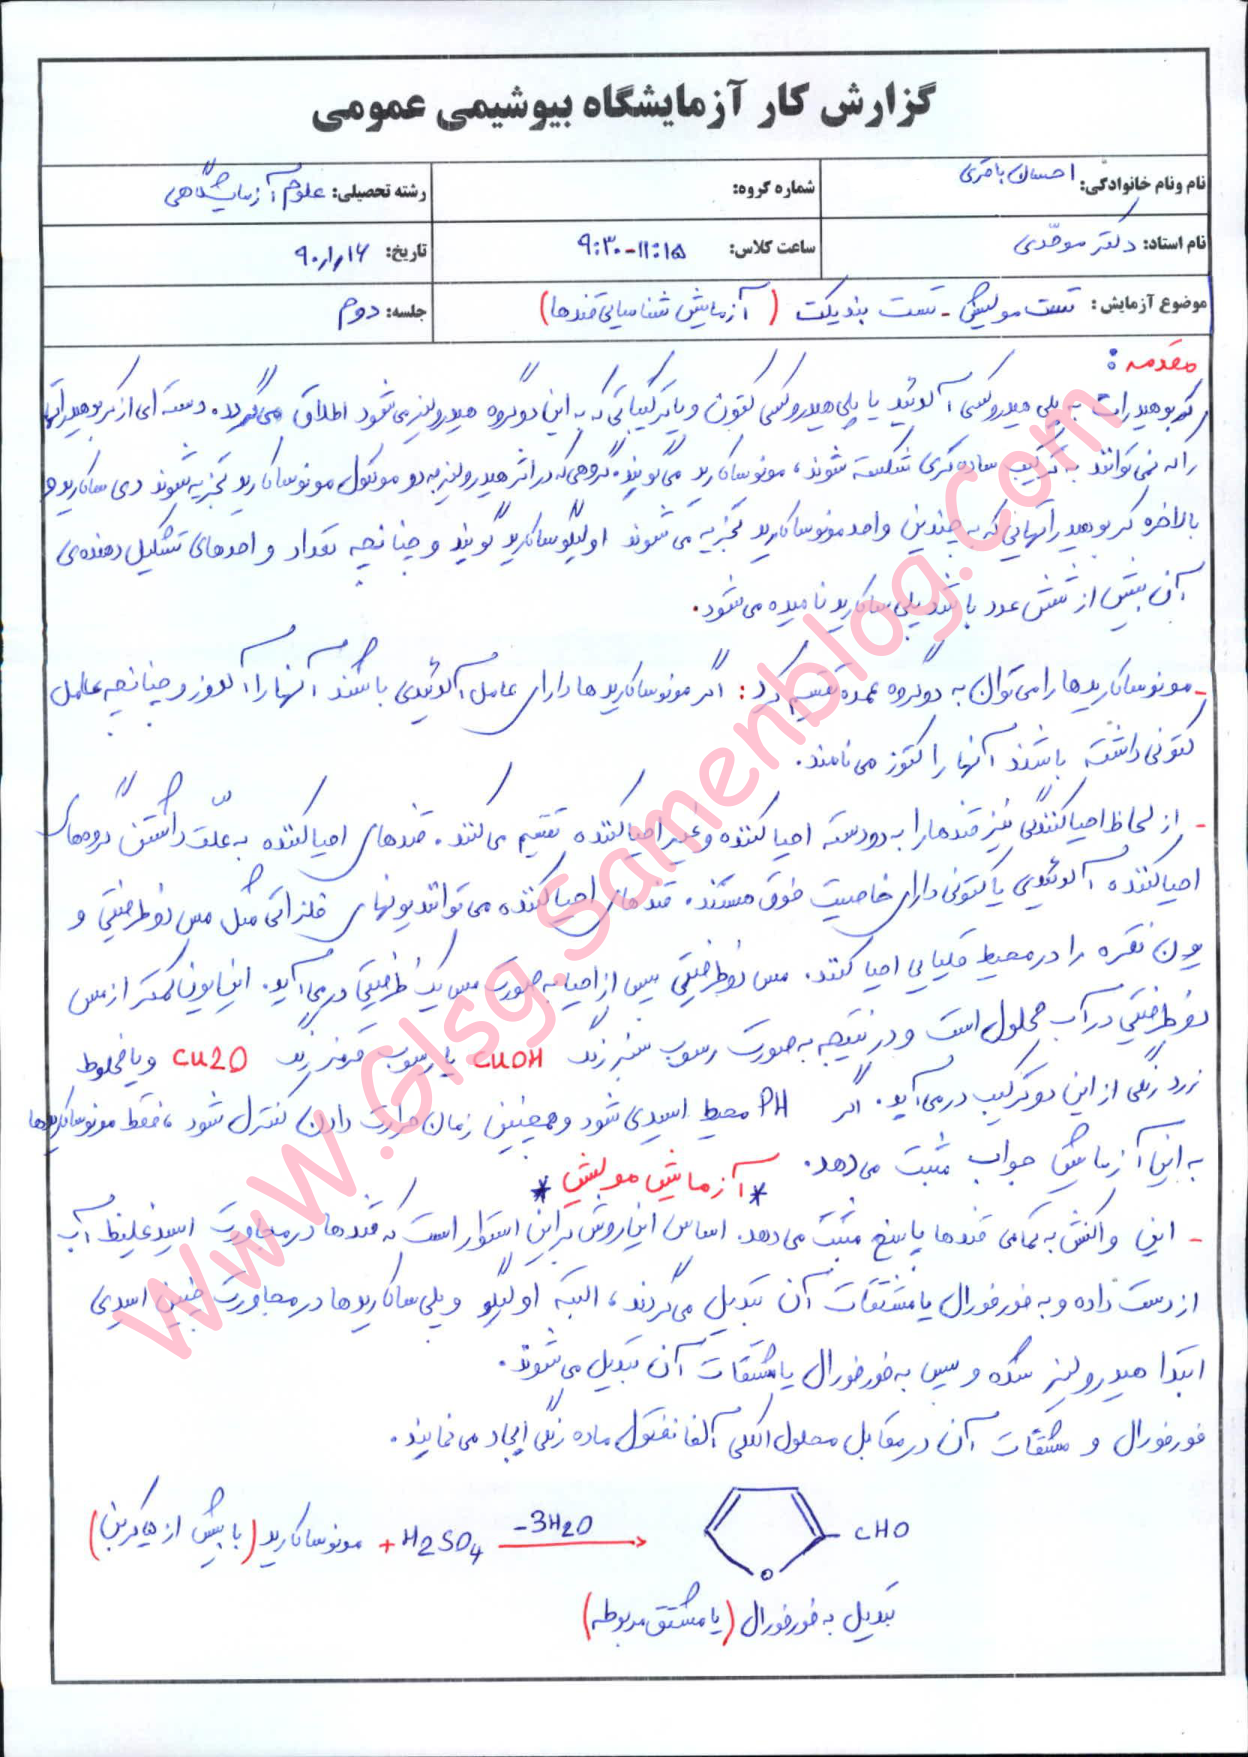 گزارش کار آزمایشگاه بیوشیمی عمومی
نام ونام خانوادگی: احسان باقری شماره گروه: رشته تحصیلی: علوم آزمایشگاهی
نام استاد: دکتر موحّدی ساعت کلاس: ۹:۳۰-۱۱:۱۵ تاریخ: ۹۰,۱,۱۶
موضوع آزمایش: تست مولیش - تست بندیکت (آزمایش شناسایی قندها) جلسه: دوم
مقدمه:
کربوهیدرات به پلی هیدروکسی آلدئید یا پلی هیدروکسی کتون و یا ترکیباتی که به این دو گروه هیدرولیز می‌شود اطلاق می‌گردد. دسته ای از کربوهیدراتها
را که نمی‌توانند به ترکیب ساده تری شکسته شوند، مونوساکارید می‌گویند. گروهی که در اثر هیدرولیز به دو مولکول مونوساکارید تجزیه شوند دی ساکارید و
بالاخره کربوهیدراتهایی که به چندین واحد مونوساکارید تجزیه می‌شوند اولیگوساکارید گویند و چنانچه تعداد واحدهای تشکیل دهنده‌ی
آن بیش از شش عدد باشد پلی ساکارید نامیده می‌شود.
- مونوساکاریدها را می‌توان به دو گروه عمده تقسیم کرد: اگر مونوساکاریدها دارای عامل آلدئیدی باشند آنها را آلدوز و چنانچه عامل
کتونی داشته باشند آنها را کتوز می‌نامند.
- از لحاظ احیا کنندگی نیز قندها را به دو دسته احیا کننده و غیر احیا کننده تقسیم می‌کنند. قندهای احیا کننده به علّت داشتن گروههای
احیا کننده آلدئیدی یا کتونی دارای خاصیت فوق هستند. قندهای احیا کننده می‌توانند یونهای فلزاتی مثل مس دو ظرفیتی و
یون نقره را در محیط قلیایی احیا کنند. مس دو ظرفیتی پس از احیا به صورت مس یک ظرفیتی در می‌آید. این یون کمتر از مس
دو ظرفیتی در آب محلول است و در نتیجه به صورت رسوب سبز رنگ CUOH یا رسوب قرمز رنگ CU2O و یا مخلوط
زرد رنگی از این دو ترکیب در می‌آید. اگر PH محیط اسیدی شود و همچنین زمان حرارت دادن کنترل شود، فقط مونوساکاریدها
به این آزمایش جواب مثبت می‌دهد.
* آزمایش مولیش *
- این واکنش به تمامی قندها پاسخ مثبت می‌دهد. اساس این روش بر این استوار است که قندها در مجاورت اسید غلیظ آب
از دست داده و به فورفورال یا مشتقات آن تبدیل می‌گردند، البته اولیگو و پلی ساکاریدها در مجاورت چنین اسیدی
ابتدا هیدرولیز شده و سپس به فورفورال یا مشتقات آن تبدیل می‌شوند.
فورفورال و مشتقات آن در مقابل محلول الکلی آلفا نفتول ماده رنگی ایجاد می‌نمایند.
مونوساکارید (با بیش از ۵ کربن) + H2SO4 -3H2O CHO
O
تبدیل به فورفورال (یا مشتق مربوطه)
www.Glsg.Samenblog.Com